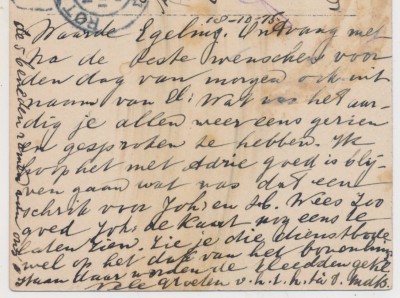 ROT
18-10-15
Waarde Egeling. Ontvang met
Na de beste wenschen voor
den dag van morgen ook uit
naam van El: Wat was het aar-
dig je allen weer eens gezien
en gesproken te hebben. Ik
hoop het met Adrie goed is blij-
ven gaan wat was dat een
schrik voor Joh: en Wees zoo
goed Joh: de kaart nog eens te
laten zien. Zie je die dienstbode
wel op het dak van het
staan daar worden de kleedden gekl.
Vele groeten v. h. t. h. t.